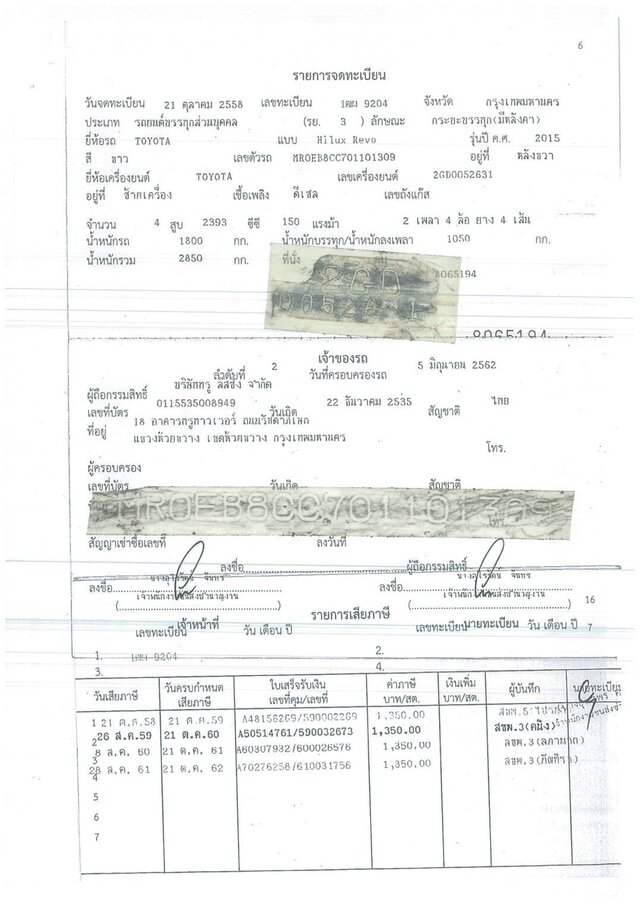 6
รายการจดทะเบียน
วันจดทะเบียน 21 ตุลาคม 2558 เลขทะเบียน 1ฒฌ 9204 จังหวัด กรุงเทพมหานคร
ประเภท รถยนต์บรรทุกส่วนบุคคล (รย. 3 ) ลักษณะ กระบะบรรทุก(มีหลังคา)
ยี่ห้อรถ TOYOTA แบบ Hilux Revo รุ่นปี ค.ศ. 2015
สี ขาว เลขตัวรถ MROEB8CC701101309 อยู่ที่ หลังขวา
ยี่ห้อเครื่องยนต์ TOYOTA เลขเครื่องยนต์ 2GD0052631
อยู่ที่ ซ้ายเครื่อง เชื้อเพลิง ดีเซล เลขถังแก๊ส
จำนวน 4 สูบ 2393 ซีซี 150 แรงม้า 2 เพลา 4 ล้อ ยาง 4 เส้น
น้ำหนักรถ 1800 กก. น้ำหนักบรรทุก/น้ำหนักลงเพลา 1050 กก.
น้ำหนักรวม 2850 กก. ที่นั่ง คน 8065194
2GD
0052631
8065194
เจ้าของรถ
ลำดับที่ 2 วันที่ครอบครองรถ 5 มิถุนายน 2562
ผู้ถือกรรมสิทธิ์ บริษัททรู ลีสซิ่ง จำกัด
เลขที่บัตร 0115535008949 วันเกิด 22 ธันวาคม 2535 สัญชาติ ไทย
ที่อยู่ 18 อาคารทรูทาวเวอร์ ถนนรัชดาภิเษก
แขวงห้วยขวาง เขตห้วยขวาง กรุงเทพมหานคร
โทร.
ผู้ครอบครอง
เลขที่บัตร วันเกิด สัญชาติ
MROEB8CC701101309
โทร.
สัญญาเช่าซื้อเลขที่ ลงวันที่
ลงชื่อ ผู้ถือกรรมสิทธิ์
ลงชื่อ ลงชื่อ
(เจ้าพนักงานขนส่งชำนาญงาน) (เจ้าพนักงานขนส่งชำนาญงาน) 16
เจ้าหน้าที่ รายการเสียภาษี นายทะเบียน
เลขทะเบียน วัน เดือน ปี เลขทะเบียน วัน เดือน ปี 7
1. 1ฒฌ 9204 2.
3. 4.
วันเสียภาษี วันครบกำหนดเสียภาษี ใบเสร็จรับเงิน เลขที่คุม/เลขที่ ค่าภาษี บาท/สต. เงินเพิ่ม บาท/สต. ผู้บันทึก นายทะเบียน
1 21 ต.ค.58 21 ต.ค.59 A48158269/590002269 1,350.00
2 26 ส.ค.59 21 ต.ค.60 A50514761/590032673 1,350.00 สขพ.3(คนึง)
3 8 ส.ค. 60 21 ต.ค. 61 A60307932/600026576 1,350.00
4 28 ส.ค. 61 21 ต.ค. 62 A70276258/610031756 1,350.00
5
6
7